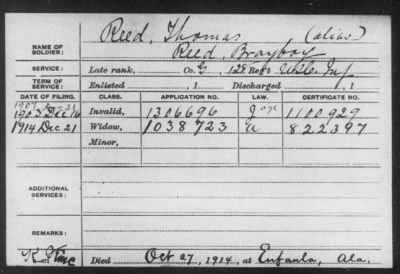 Reed, Thomas (alias)
NAME OF SOLDIER: Reed, Brayboy
SERVICE: Late rank, Co. G, 128 Reg't U.S.C. Inf
TERM OF SERVICE: Enlisted , 1 Discharged , 1
DATE OF FILING. CLASS. APPLICATION NO. LAW. CERTIFICATE NO.
1903 Dec 16 Invalid, 1306696 1100929
1914 Dec 21 Widow, 1038723 822397
Minor,
ADDITIONAL SERVICES:
REMARKS:
Died Oct 27, 1914, at Eufaula, Ala.